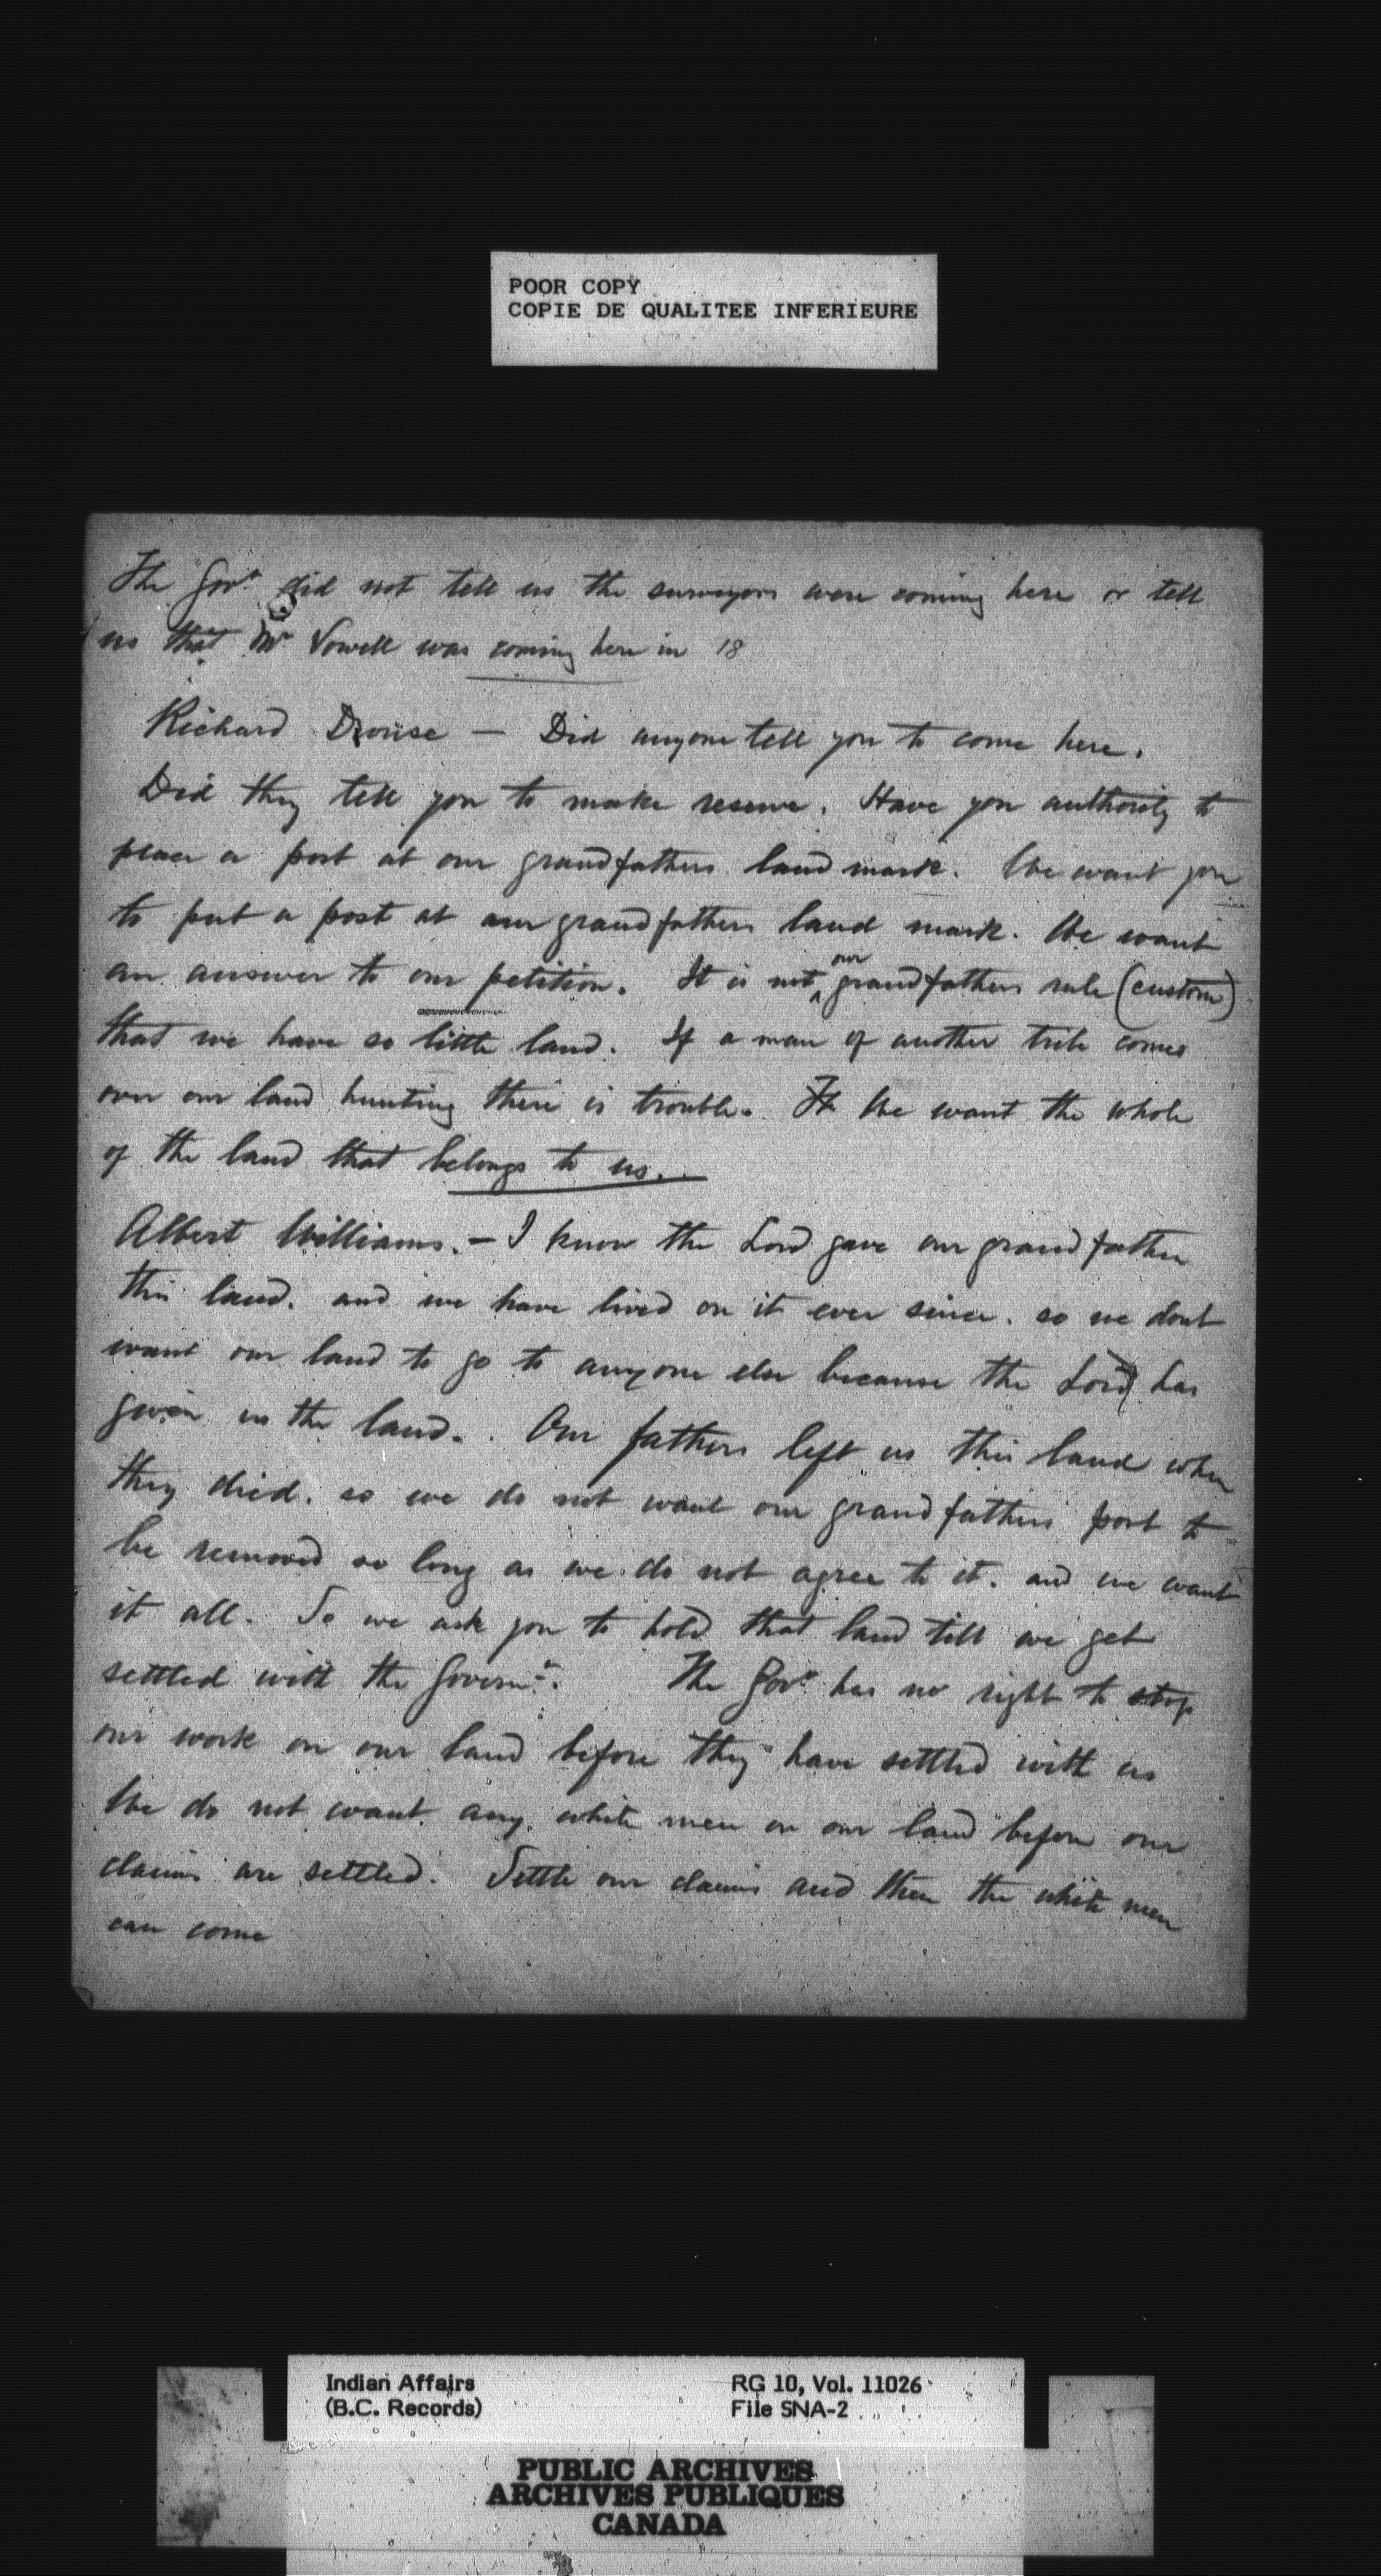 POOR COPY
COPIE DE QUALITEE INFERIEURE
The Govt did not tell us the surveyors were coming here or tell
us that Mr Vowell was coming here in 18
Richard — Did anyone tell you to come here.
Did they tell you to make reserve. Have you authority to
place a post at our grandfathers land mark. We want you
to put a post at our grandfathers land mark. We want
an answer to our petition. It is not our grandfathers rule (custom)
that we have so little land. If a man of another tribe comes
over our land hunting there is trouble. It We want the whole
of the land that belongs to us.
Albert Williams. – I know the Lord gave our grandfather
this land. and we have lived on it ever since. so we dont
want our land to go to anyone else because the Lord has
given us the land. Our fathers left us this land when
they died. so we do not want our grandfathers post to
be removed so long as we do not agree to it. and we want
it all. So we ask you to hold that land till we get
settled with the Governt. The Govt has no right to stop
our work on our land before they have settled with us
We do not want any white men on our land before our
claims are settled. Settle our claims and then the white men
can come
Indian Affairs RG 10, Vol. 11026
(B.C. Records) File SNA-2
PUBLIC ARCHIVES
ARCHIVES PUBLIQUES
CANADA